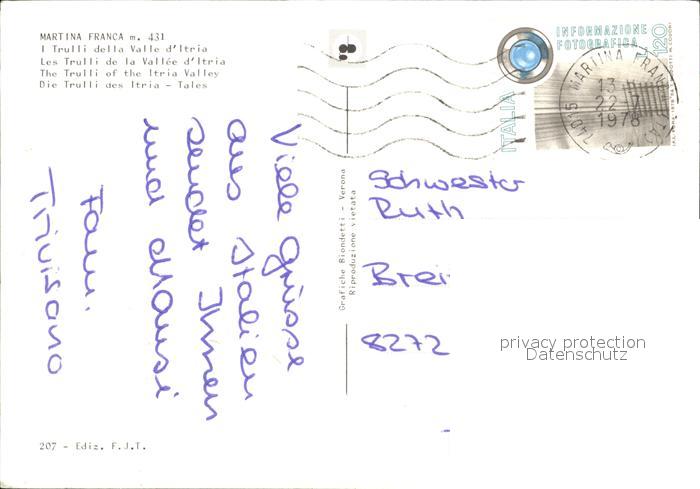 MARTINA FRANCA m. 431
I Trulli della Valle d'Itria
Les Trulli de la Vallée d'Itria
The Trulli of the Itria Valley
Die Trulli des Itria - Tales
INFORMAZIONE
FOTOGRAFICA
120
ITALIA
74015 MARTINA FRANCA (TA)
13
22 7
1978
Viele Grüsse
aus Italien
sendet Ihnen
und Mausi
Fam.
Trivisano
Grafiche Biondetti - Verona
Riproduzione vietata
Schwester
Ruth
Brei
8272
privacy protection
Datenschutz
207 - Ediz. F.J.T.